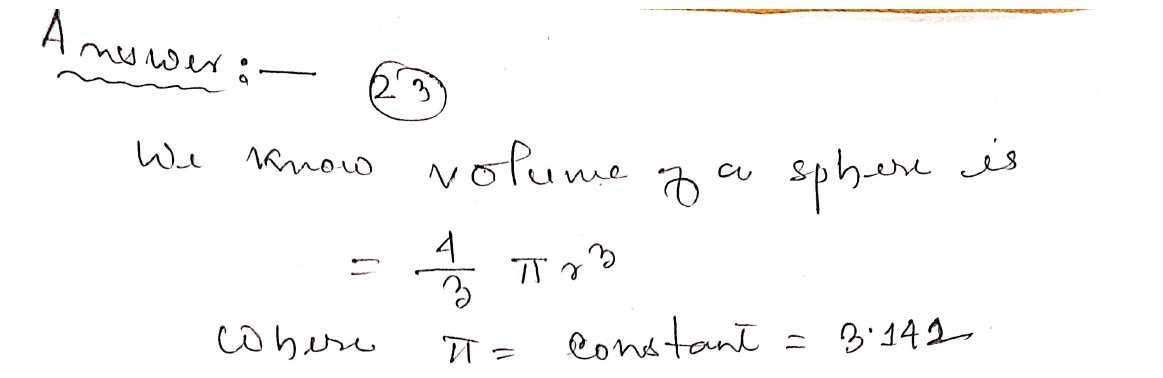 Answer :— 23
We know volume of a sphere is
= 4/3 π r³
where π = constant = 3.142